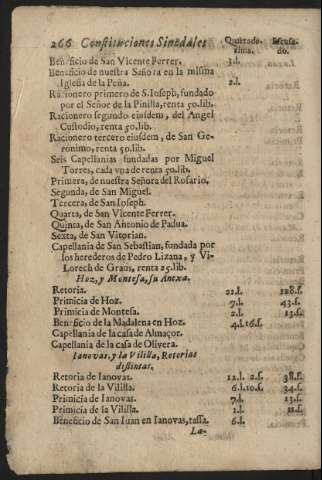 266 Constituciones Sinodales
Quarta de-
zima.
Escusa-
do.
Beneficio de San Vicente Ferrer. 1.l.
Beneficio de nuestra Señora en la misma
Iglesia de la Peña. 2.l.
Racionero primero de S. Ioseph, fundado
por el Señor de la Pinilla, renta 50.lib.
Racionero segundo eiusdem, del Angel
Custodio, renta 50.lib.
Racionero tercero eiusdem, de San Ge-
ronimo, renta 50.lib.
Seis Capellanias fundadas por Miguel
Torres, cada vna de renta 50.lib.
Primera, de nuestra Señora del Rosario.
Segunda, de San Miguel.
Tercera, de San Ioseph.
Quarta, de San Vicente Ferrer.
Quinta, de San Antonio de Padua.
Sexta, de San Vitorian.
Capellania de San Sebastian, fundada por
los herederos de Pedro Lizana, y Vi-
Lorech de Graus, renta 25.lib.
Hoz, y Montesa, su Anexa.
Retoria. 22.l. 128.s.
Primicia de Hoz. 7.l. 43.s.
Primicia de Montesa. 2.l. 13.s.
Beneficio de la Madalena en Hoz. 4.l.16.s.
Capellania de la casa de Almaçor.
Capellania de la casa de Olivera.
Ianovas, y la Vililla, Retorias
distintas.
Retoria de Ianovas. 12.l. 2.s. 38.s.
Retoria de la Vililla. 6.l.10.s. 34.s.
Primicia de Ianovas. 7.l. 13.s.
Primicia de la Vililla. 1.l. 11.s.
Beneficio de San Iuan en Ianovas, tassa. 6.l.
La-